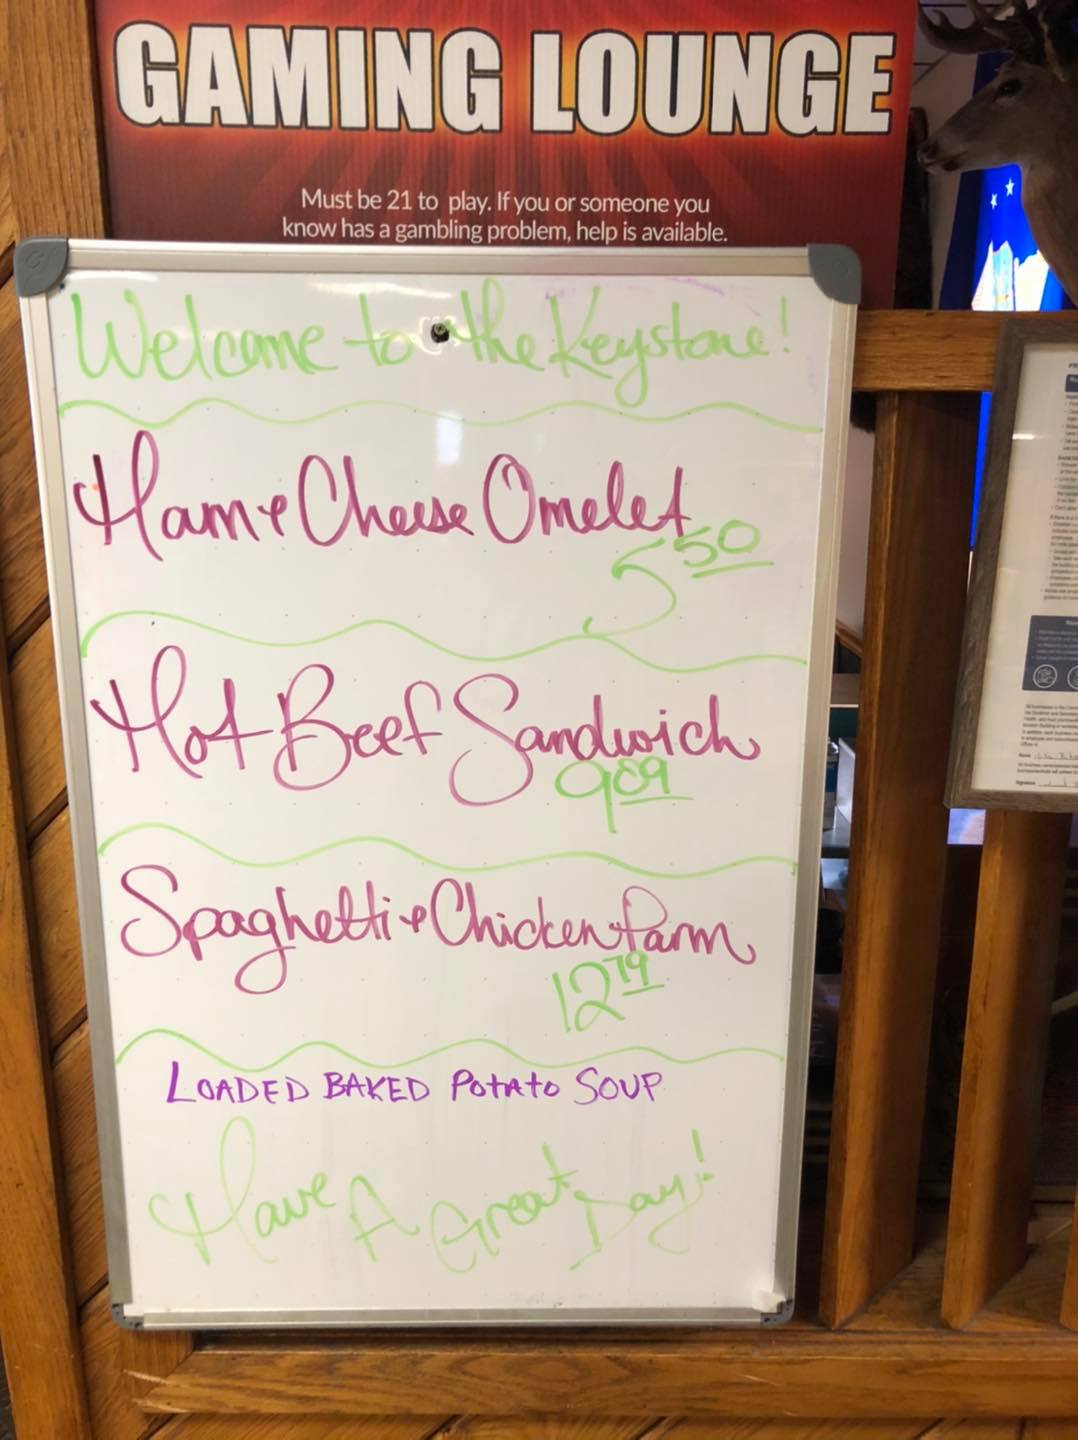 GAMING LOUNGE
Must be 21 to play. If you or someone you
know has a gambling problem, help is available.
Welcome to the Keystone!
Ham + Cheese Omelet
5 50
Hot Beef Sandwich
9 89
Spaghetti + Chicken Parm
12 79
LOADED BAKED POTATO SOUP
Have A Great Day!